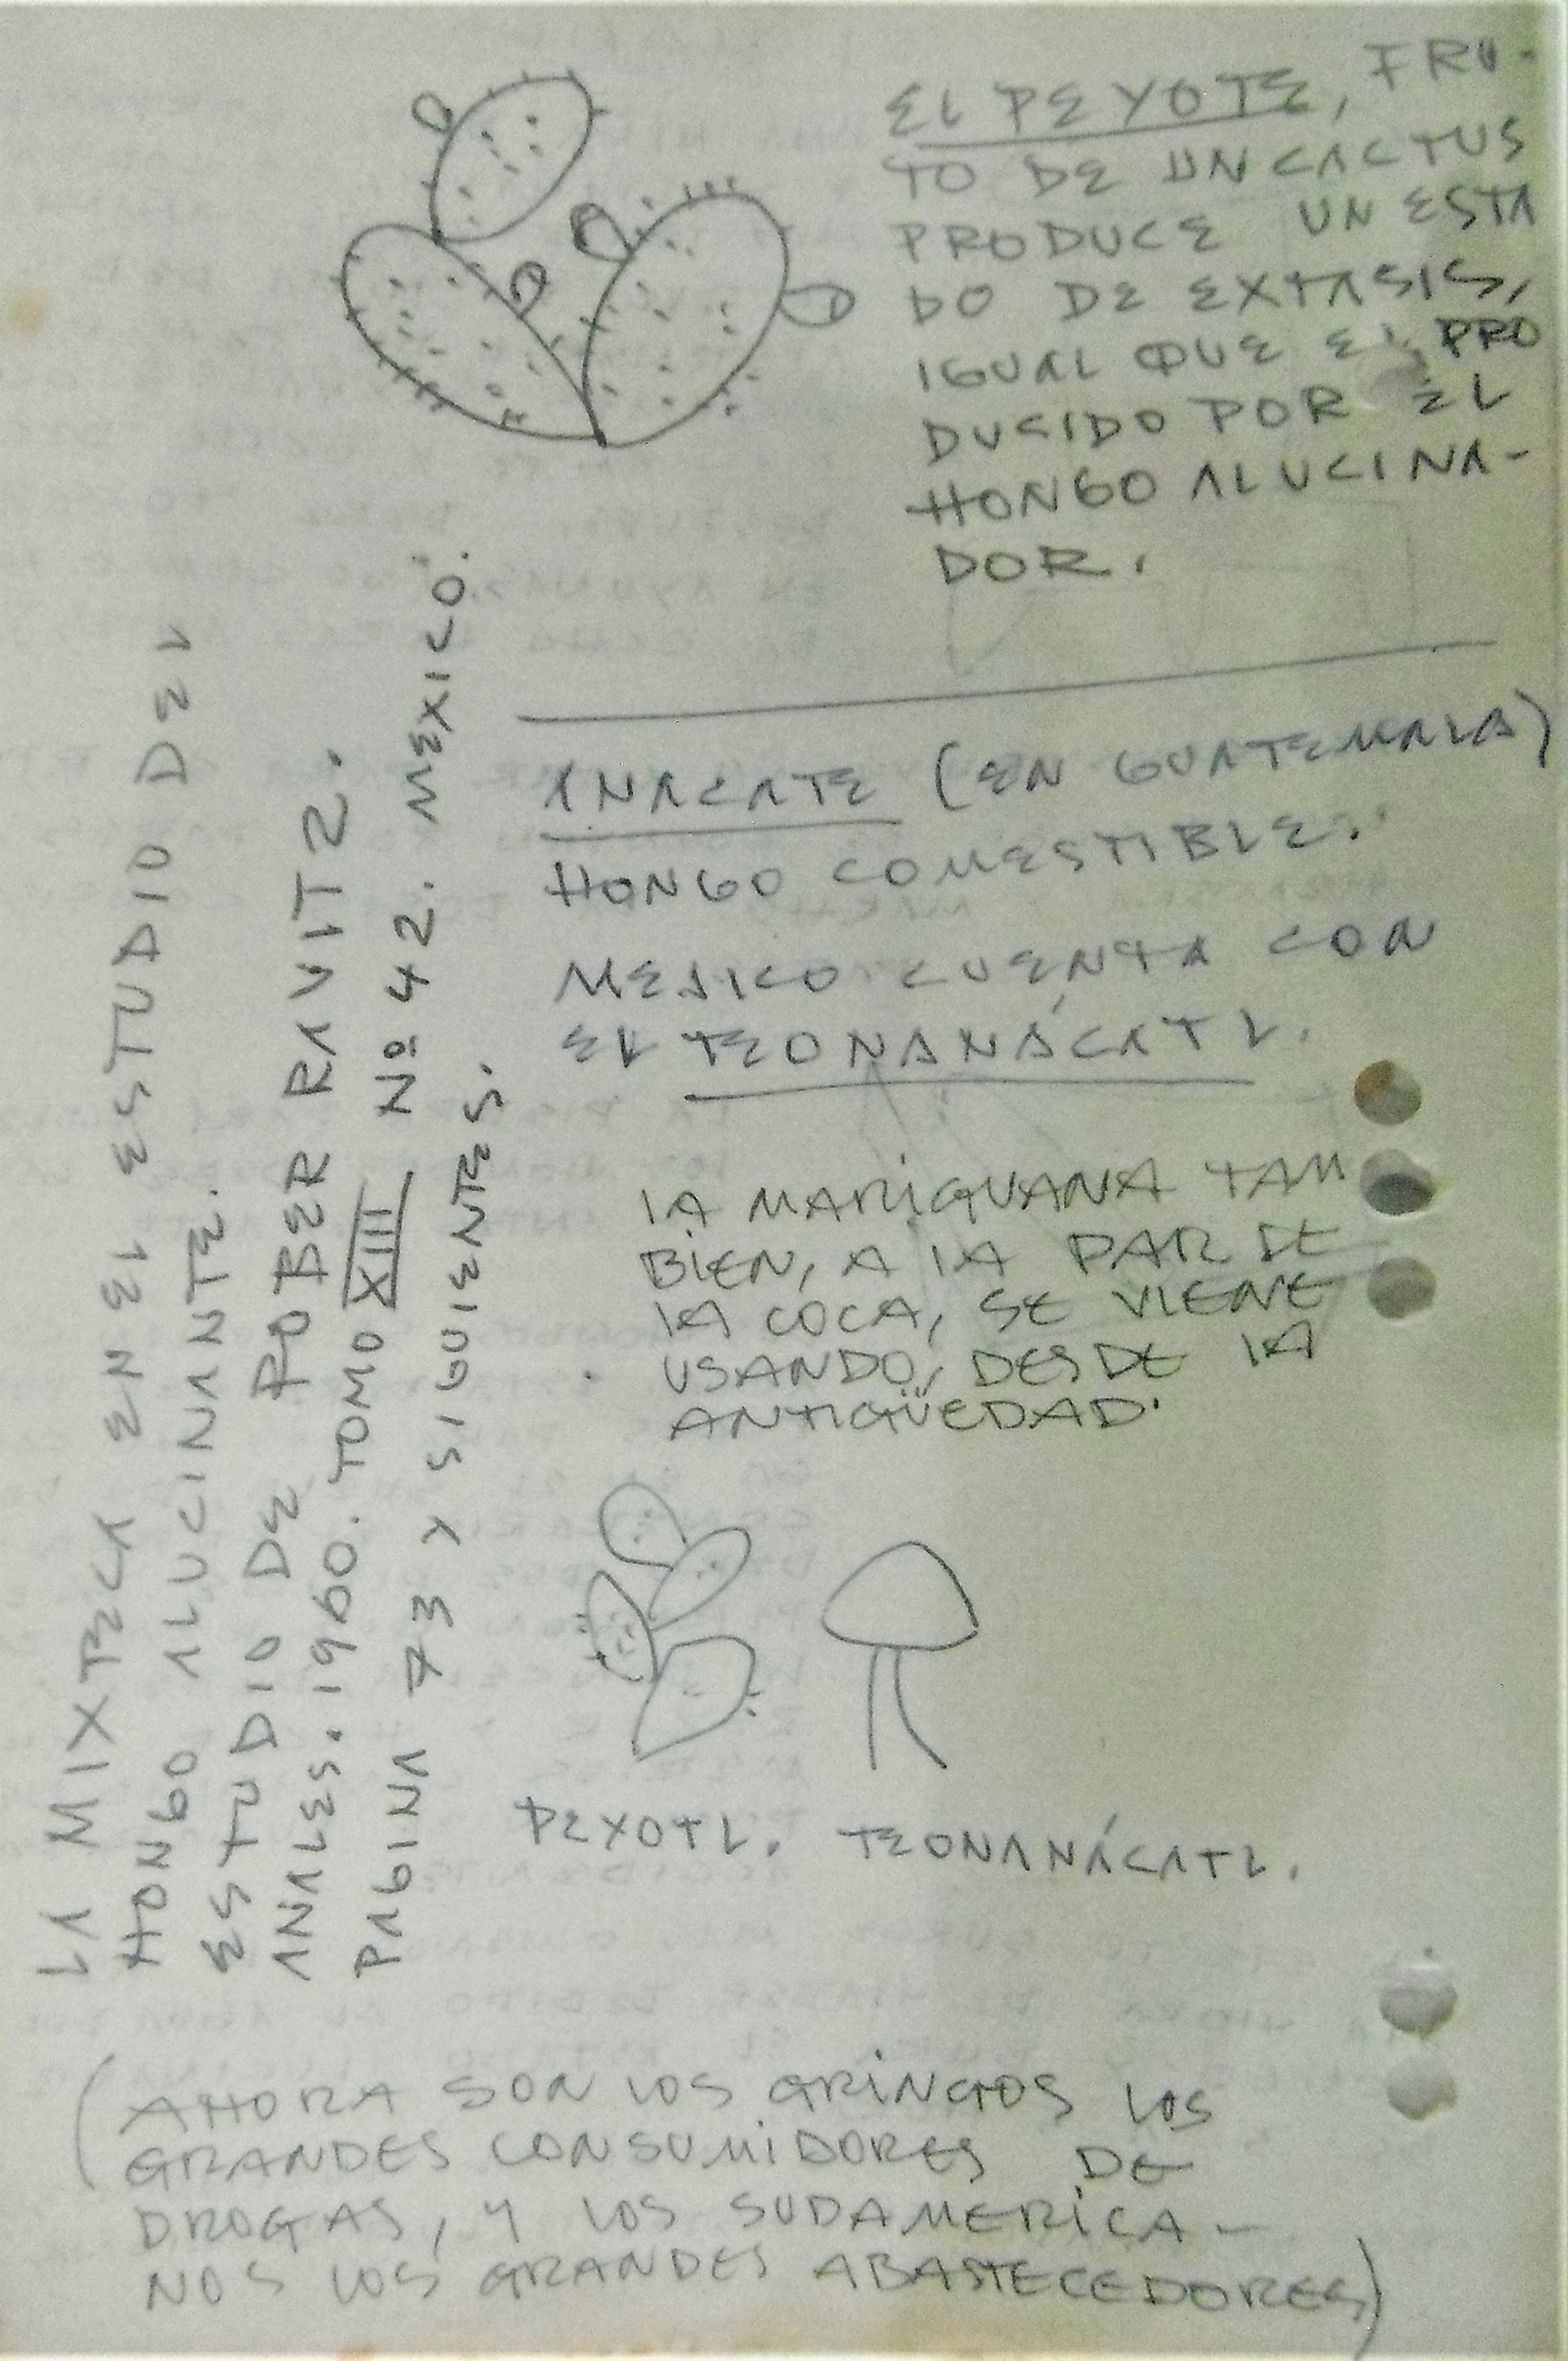 EL PEYOTE, FRU-
TO DE UN CACTUS
PRODUCE UN ESTA
DO DE EXTASIS,
IGUAL QUE EL PRO
DUSIDO POR EL
HONGO ALUCINA-
DOR.
ANACATE (EN GUATEMALA)
HONGO COMESTIBLE.
MEJICO CUENTA CON
EL TEONANÁCATL.
LA MARIGUANA TAM
BIEN, A LA PAR DE
LA COCA, SE VIENE
USANDO, DESDE LA
ANTIGÜEDAD.
PEYOTL. TEONANÁCATL.
LA MIXTECA EN EL ESTUDIO DEL
HONGO ALUCINANTE.
ESTUDIO DE ROBER RAVITZ.
ANALES. 1960. TOMO XIII Nº 42. MEXICO.
PAGINA 73 Y SIGUIENTES.
(AHORA SON LOS GRINGOS LOS
GRANDES CONSUMIDORES DE
DROGAS, Y LOS SUDAMERICA-
NOS LOS GRANDES ABASTECEDORES)